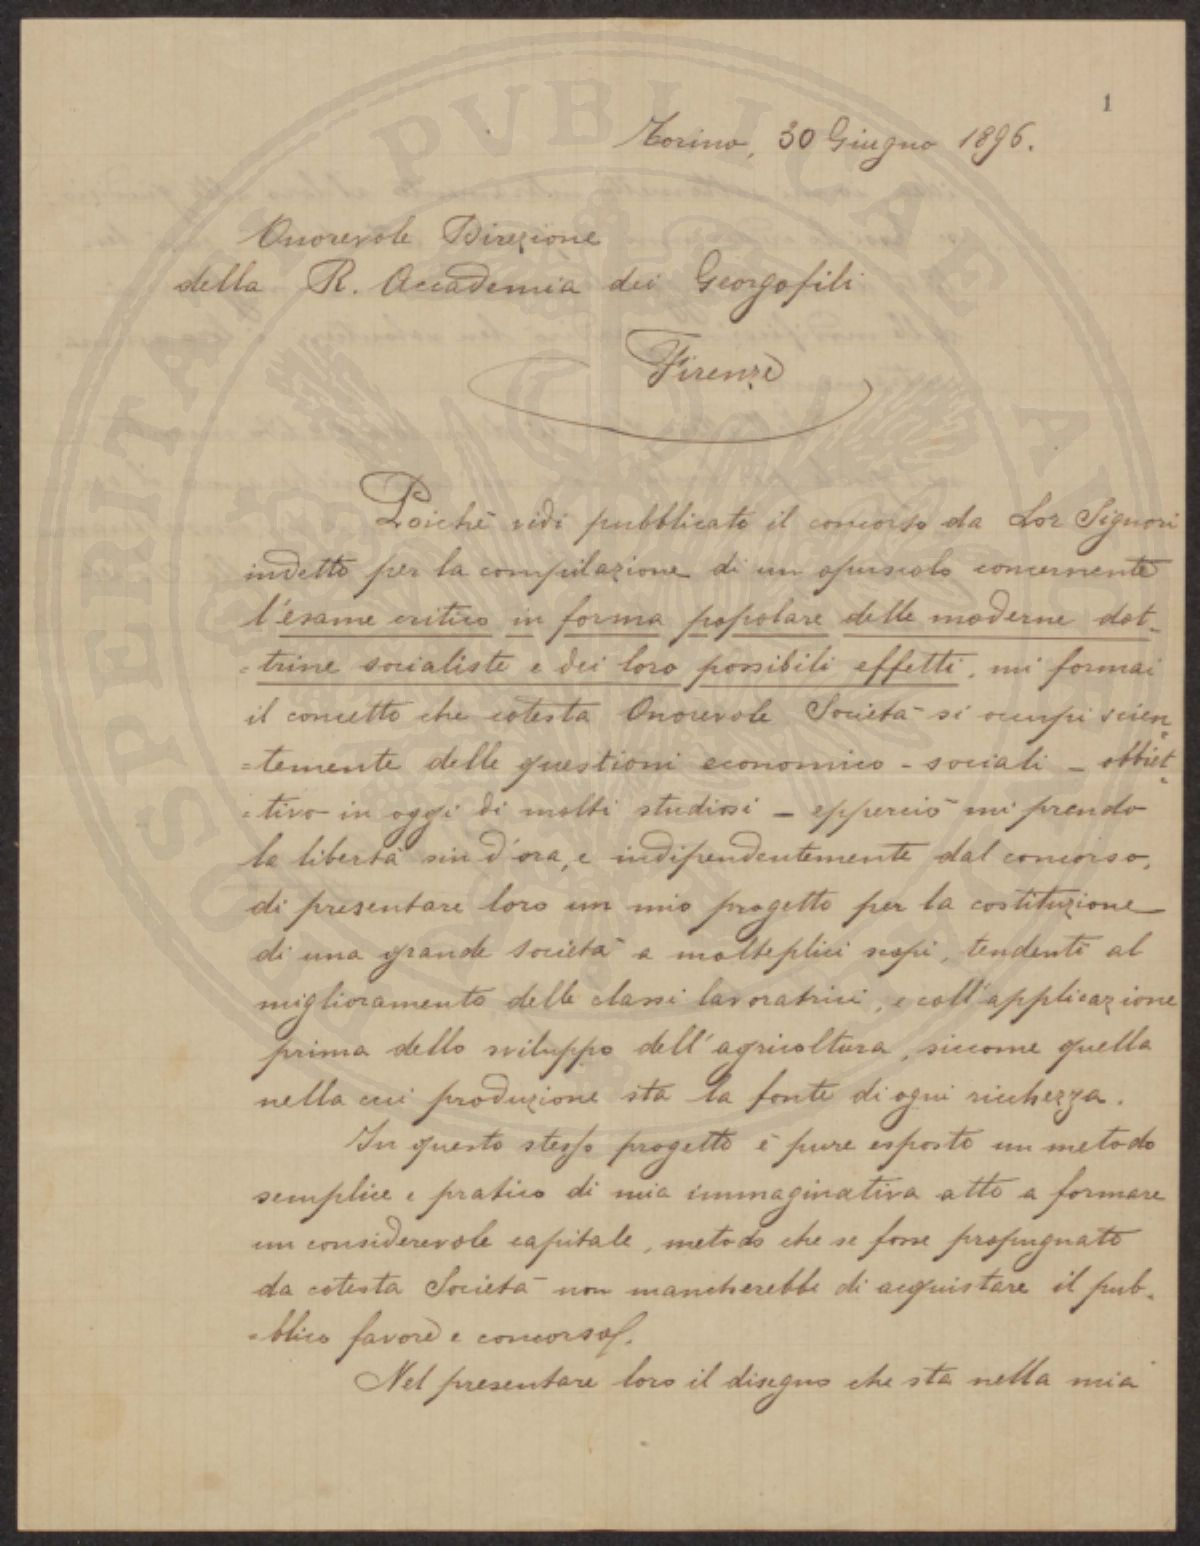 1
Torino, 30 Giugno 1896.
Onorevole Direzione
della R. Accademia dei Georgofili
Firenze
Poichè vidi pubblicato il concorso da Lor Signori
indetto per la compilazione di un opuscolo concernente
l'esame critico in forma popolare delle moderne dot-
=trine socialiste e dei loro possibili effetti, mi formai
il concetto che cotesta Onorevole Società si occupi scien=
=temente delle questioni economico-sociali - obbiet=
=tivo in oggi di molti studiosi - epperciò mi prendo
la libertà sin d'ora, e indipendentemente dal concorso,
di presentare loro un mio progetto per la costituzione
di una grande società a molteplici scopi, tendenti al
miglioramento delle classi lavoratrici, e coll'applicazione
prima dello sviluppo dell'agricoltura, siccome quella
nella cui produzione sta la fonte di ogni ricchezza.
In questo stesso progetto è pure esposto un metodo
semplice e pratico di mia immaginativa atto a formare
un considerevole capitale, metodo che se fosse propugnato
da cotesta Società non mancherebbe di acquistare il pub-
=blico favore e concorso.
Nel presentare loro il disegno che sta nella mia